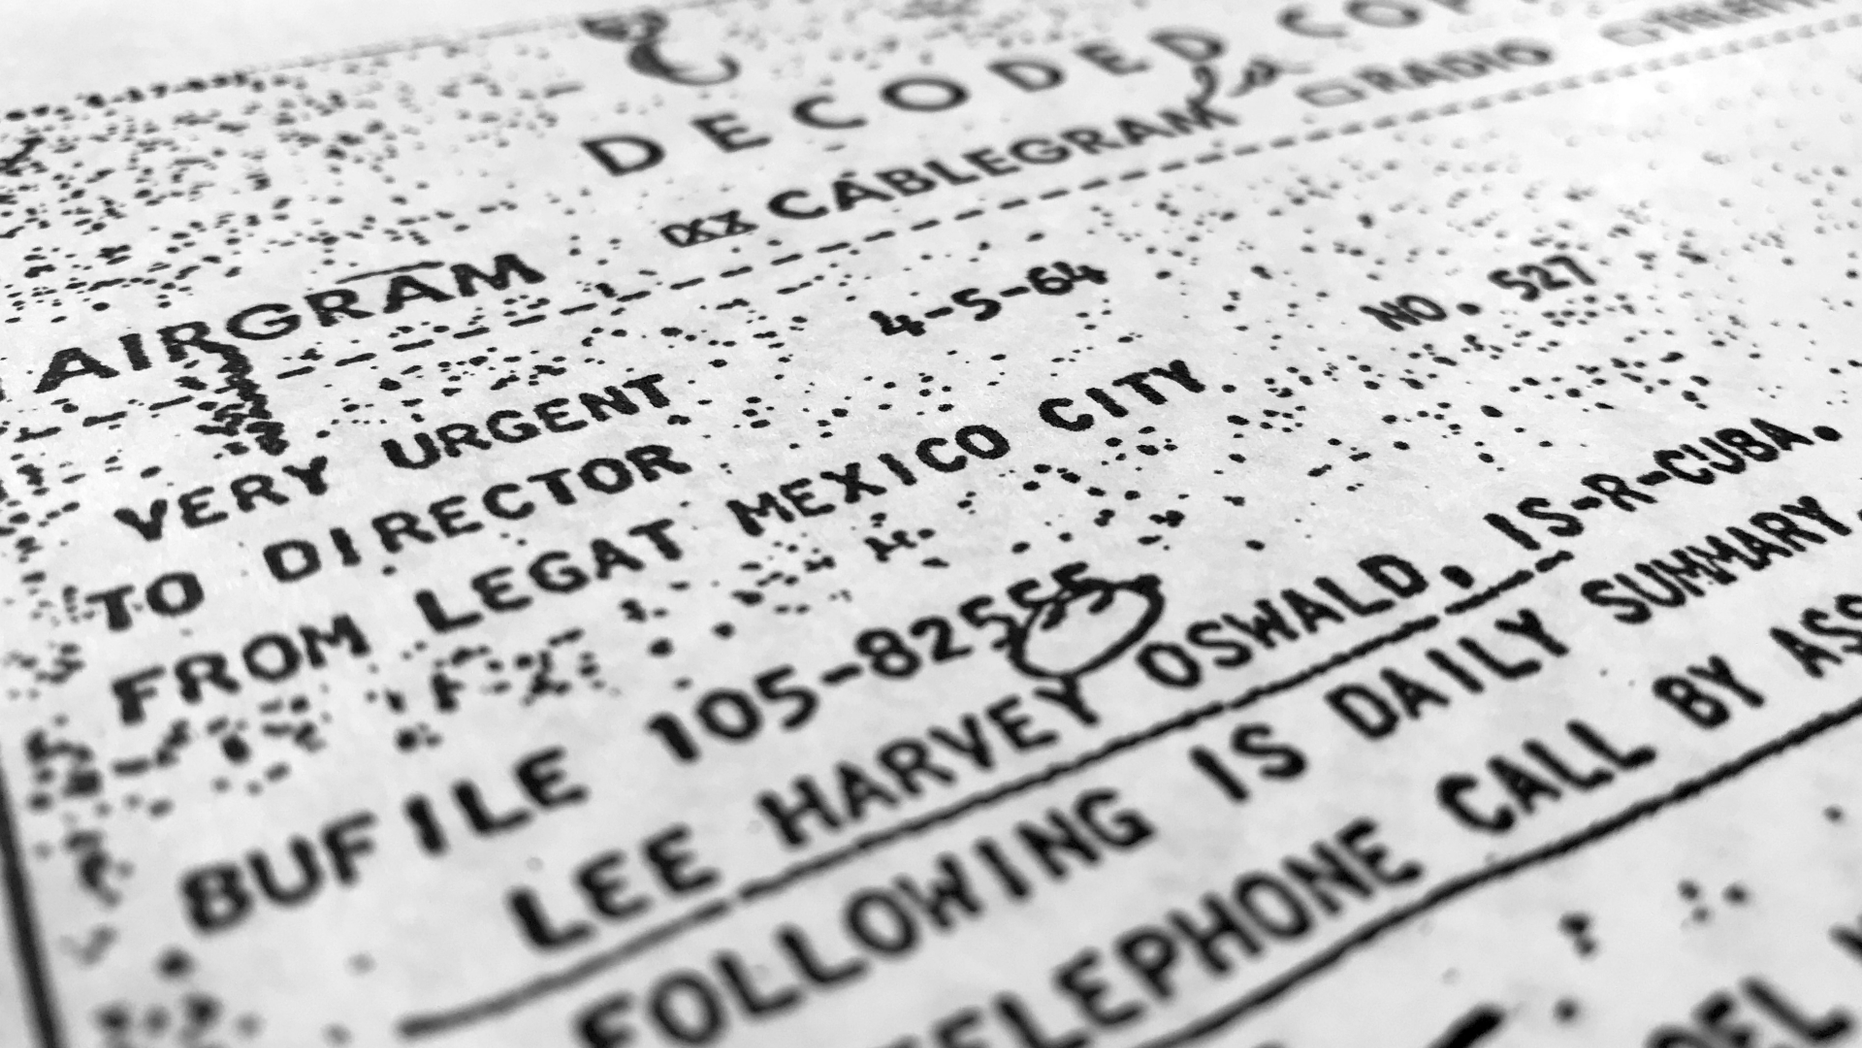 DECODED COPY
AIRGRAM
CABLEGRAM
RADIO
VERY URGENT 4-5-64 NO. 527
TO DIRECTOR
FROM LEGAT MEXICO CITY
BUFILE 105-82555
LEE HARVEY OSWALD, IS-R-CUBA.
FOLLOWING IS DAILY SUMMARY.
TELEPHONE CALL BY